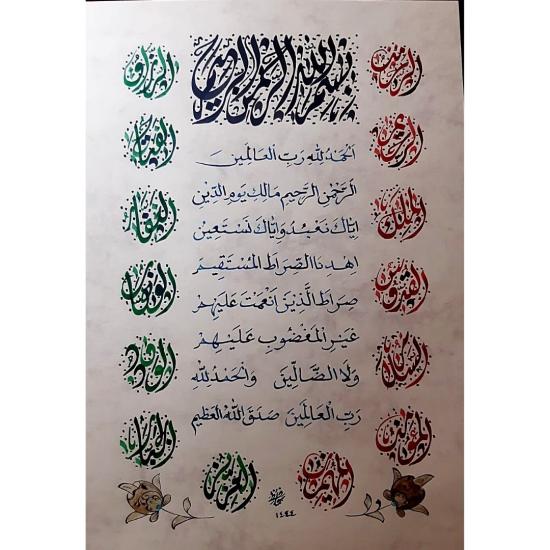 بسم الله الرحمن الرحيم
الحمد لله رب العالمين
الرحمن الرحيم مالك يوم الدين
اياك نعبد واياك نستعين
اهدنا الصراط المستقيم
صراط الذين انعمت عليهم
غير المغضوب عليهم
ولا الضالين والحمد لله
رب العالمين صدق الله العظيم
الرحمن
الرحيم
الملك
القدوس
السلام
المؤمن
المهيمن
العزيز
الرزاق
الفتاح
الغفار
الوهاب
الودود
الجبار
١٤٤٤